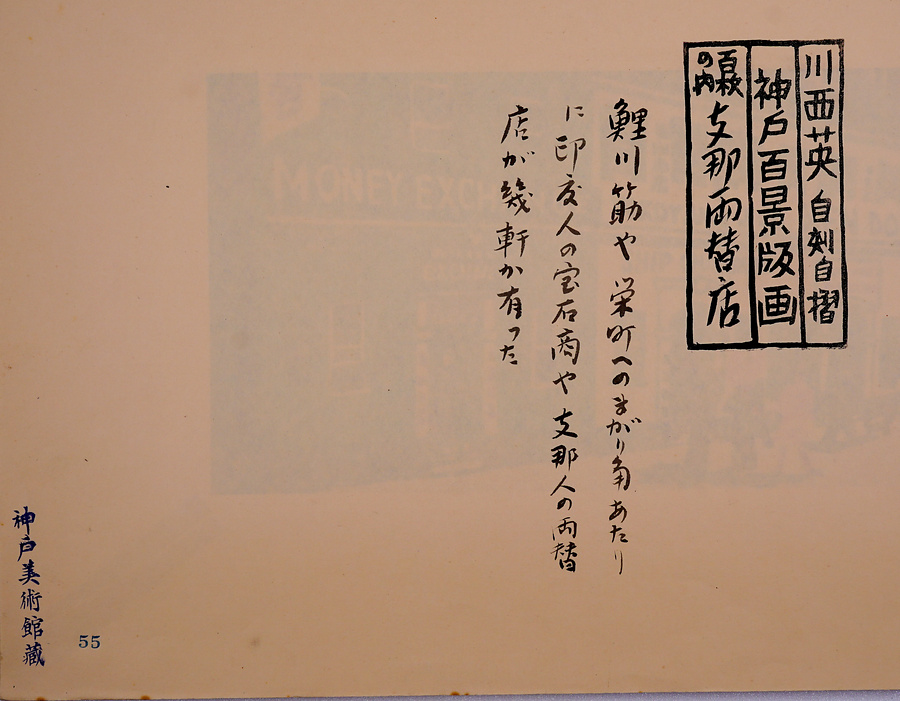 川西英 自刻自摺
神戸百景版画
百景の内 支那両替店
鯉川筋や栄町へのまがり角あたり
に印度人の宝石商や支那人の両替
店が幾軒か有った
MONEY EXCH
神戸美術館蔵
55